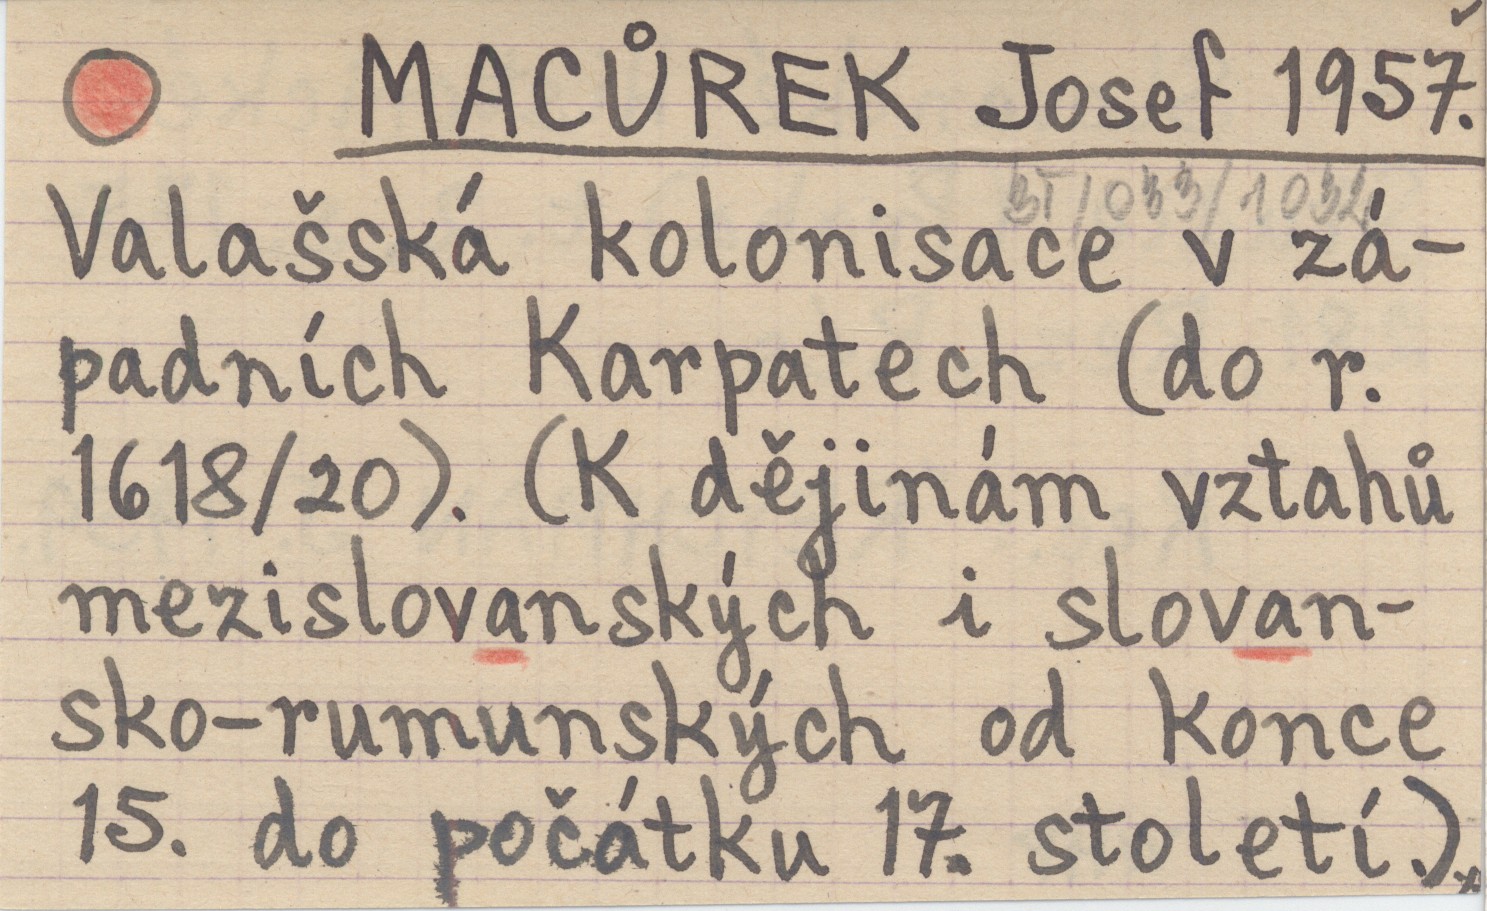 MACŮREK Josef 1957.
Valašská kolonisace v zá-
padních Karpatech (do r.
1618/20). (K dějinám vztahů
mezislovanských i slovan-
sko-rumunských od konce
15. do počátku 17. století.)